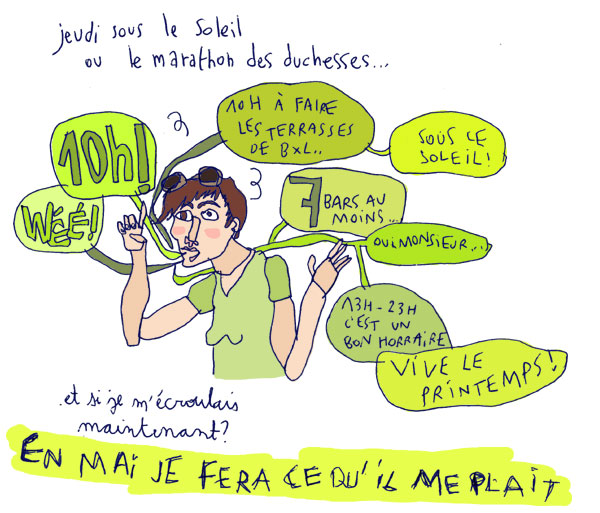 jeudi sous le soleil
ou le marathon des duchesses...
10H À FAIRE
LES TERRASSES
DE BXL..
SOUS LE
SOLEIL!
10h!
WÉÉÉ!
7
BARS AU
MOINS...
OUI MONSIEUR...
13H - 23H
C'EST UN
BON HORRAIRE
VIVE LE
PRINTEMPS!
et si je m'écroulais
maintenant?
EN MAI JE FERA CE QU'IL ME PLAIT